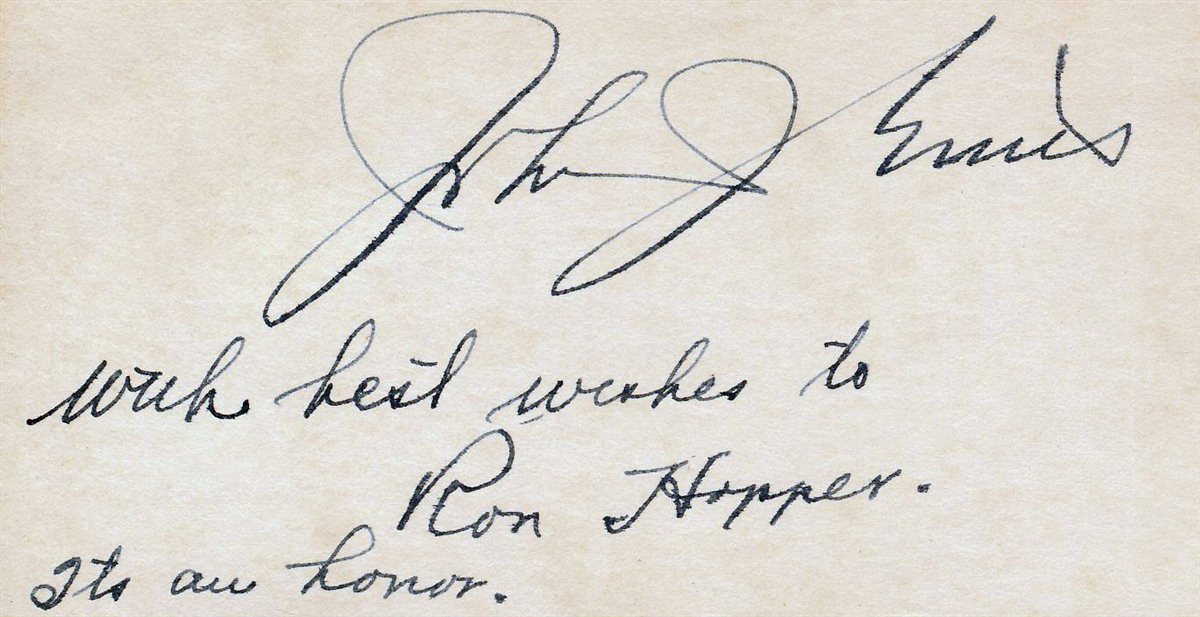 John J
With best wishes to
Ron Hopper.
Its an honor.